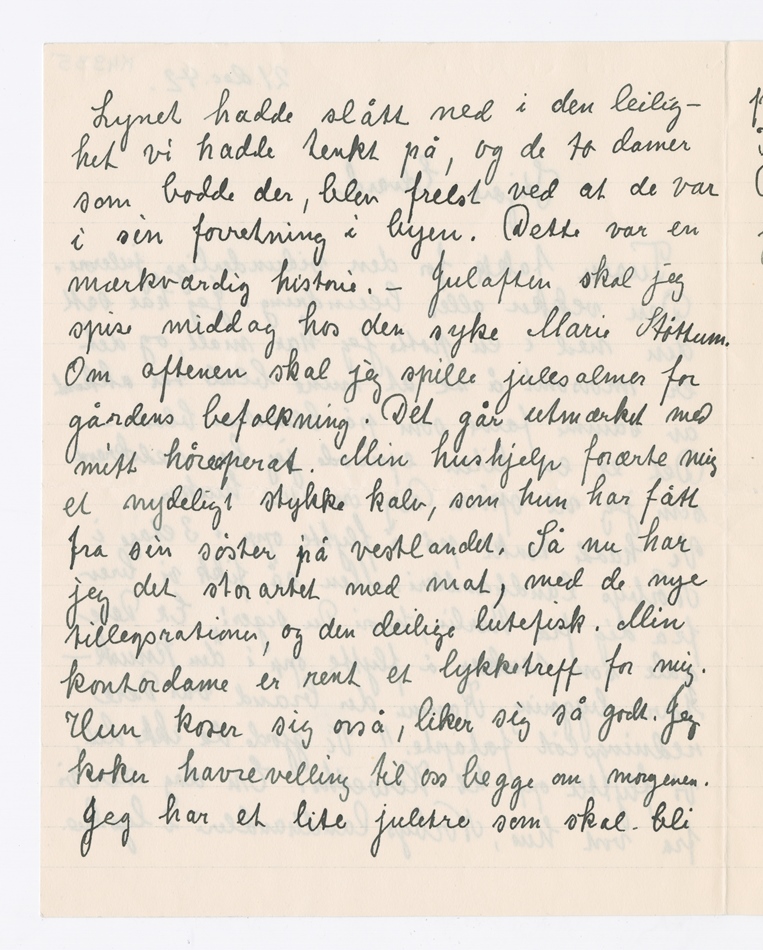 Lynet hadde slått ned i den leilig-
het vi hadde tenkt på, og de to damer
som bodde der, blev frelst ved at de var
i sin forretning i byen. Dette var en
mærkværdig historie. - Julaften skal jeg
spise middag hos den syke Marie Støttum.
Om aftenen skal jeg spille julesalmer for
gårdens befolkning. Det går utmærket med
mitt höreapperat. Min hushjelp forærte mig
et nydeligt stykke kalv, som hun har fått
fra sin söster på vestlandet. Så nu har
jeg det storartet med mat, med de nye
tilleggsrationer, og den deilige lutefisk. Min
kontordame er rent et lykketreff for mig.
Hun koser sig også, liker sig så godt. Jeg
koker havrevelling til oss begge om morgenen.
Jeg har et lite juletre som skal bli